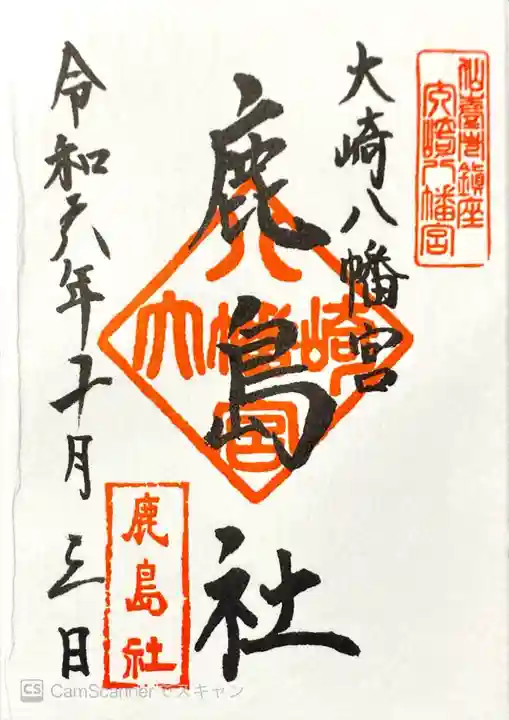 仙臺鎮座
大崎八幡宮
大崎八幡宮
鹿島社
八
大幡崎
宮
令和六年十月三日
鹿島社
CS CamScannerでスキャン